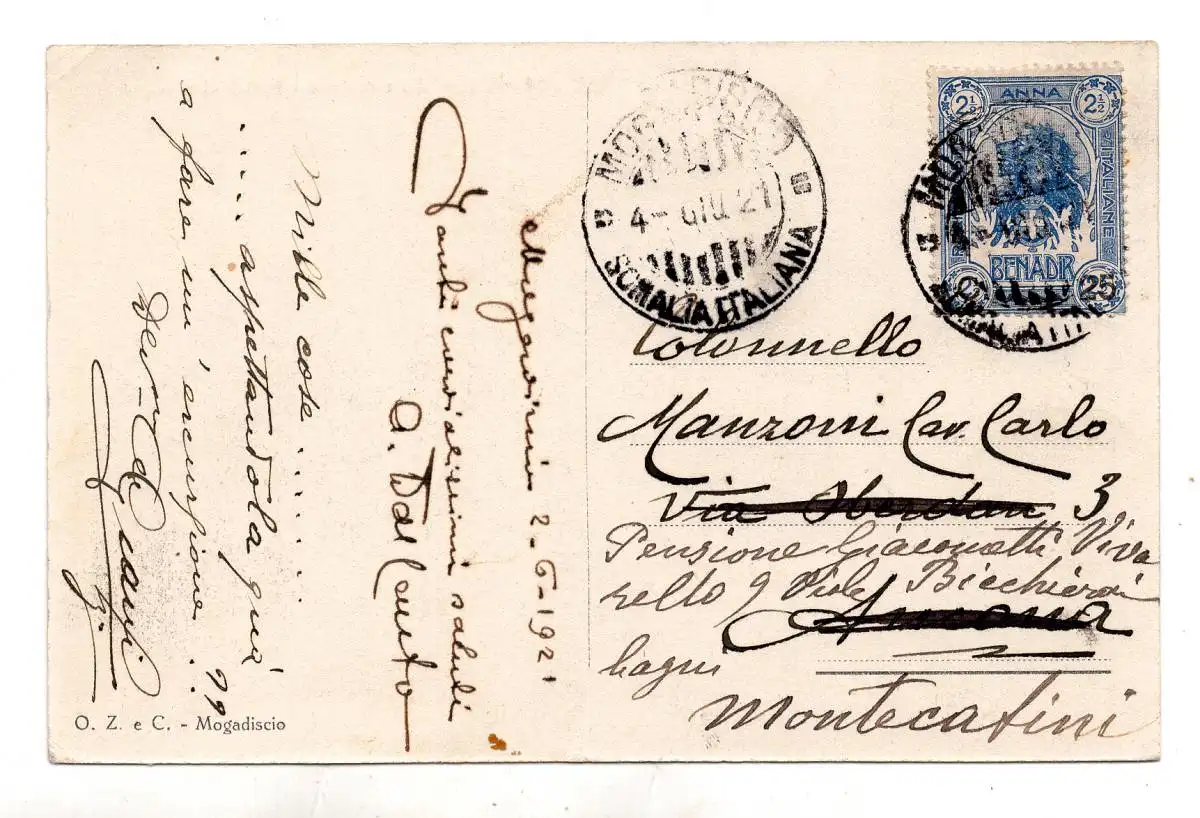 Mogadiscio 2-6-1921
Tanti cordialissimi saluti
A. Dal Canto
Mille cose . . . . . . .
. . . . . aspettandola quà
a fare un' escursione . .
O. Z. e C. - Mogadiscio
MOGADISCIO
4- GIU 21
SOMALIA ITALIANA
ANNA
2½ 2½
ITALIANE
BENADIR
25
MOGADISCIO
4- GIU 21
SOMALIA ITALIANA
Colonnello
Manzoni Cav. Carlo
Via Oberdan 3
Pensione Giacometti Viva
rello 9 Viale Bicchierai
Ancona
bagni
Montecatini